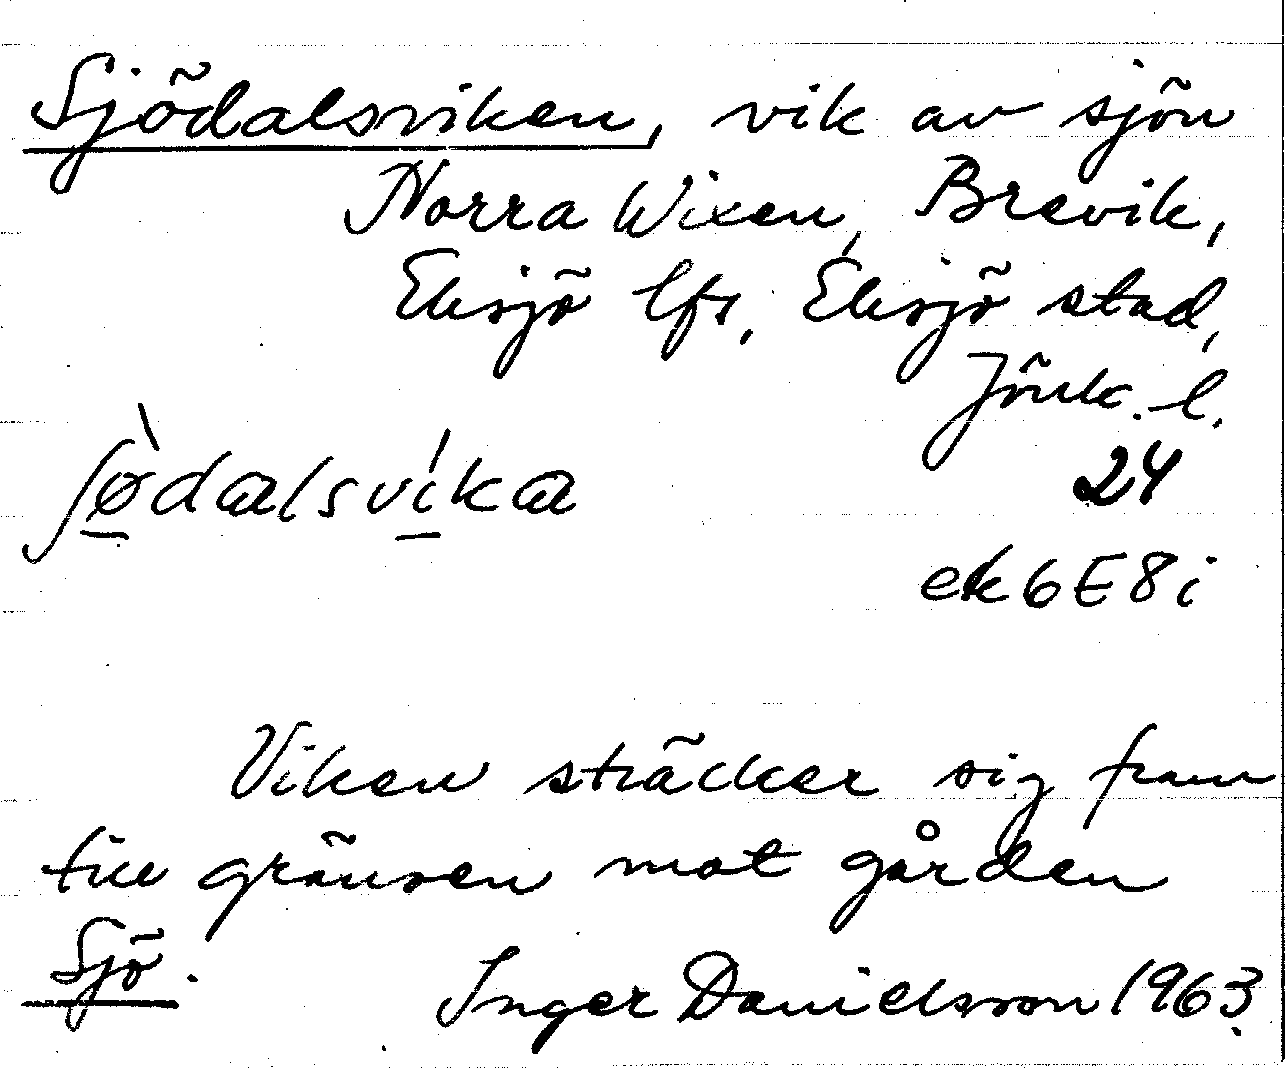 Sjödalsviken, vik av sjön
Norra Wixen, Brevik,
Eksjö lfs, Eksjö stad,
Jönk. l.
ʃø̀dalsvíka
24
ek 6E8i
Viken sträcker sig fram
till gränsen mot gården
Sjö.
Inger Danielsson 1963.